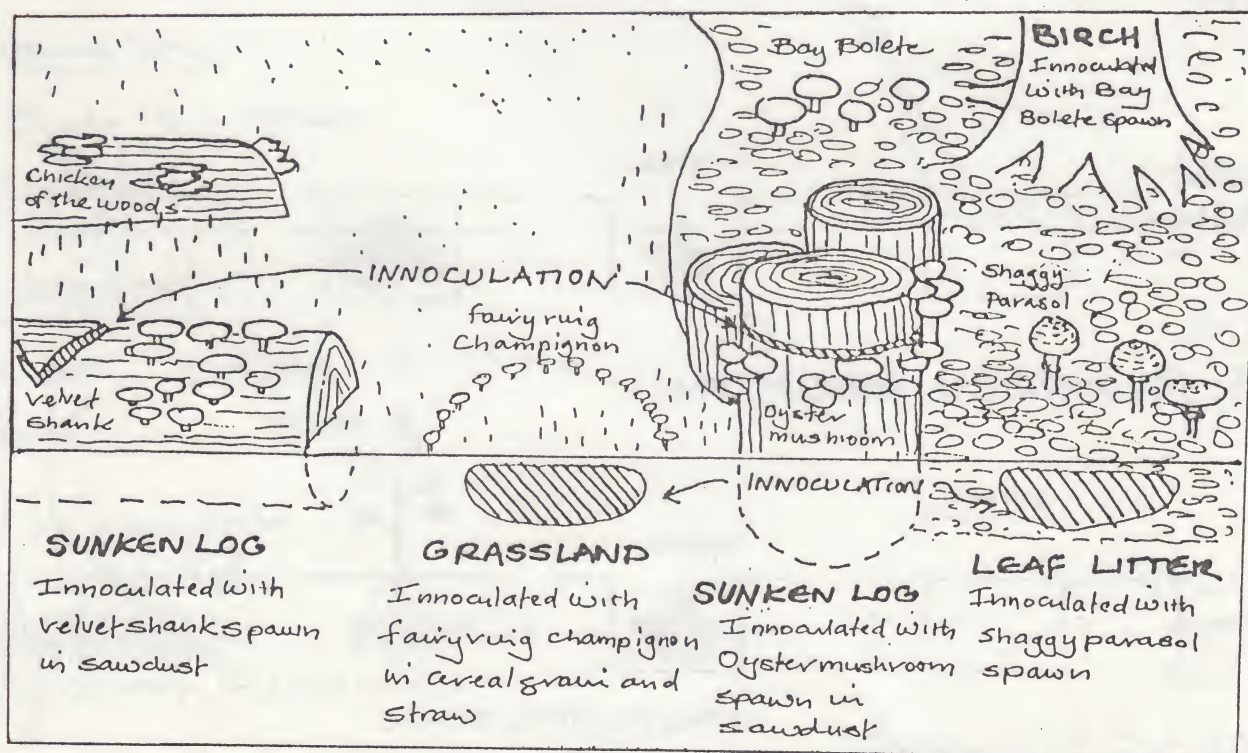 Bay Bolete
BIRCH
Innoculated
with Bay
Bolete spawn
Chicken
of the woods
INNOCULATION
fairy ring
Champignon
Shaggy
Parasol
velvet
Shank
Oyster
mushroom
INNOCULATION
SUNKEN LOG
Innoculated with
velvet shank spawn
in sawdust
GRASSLAND
Innoculated with
fairy ring champignon
in cereal grain and
straw
SUNKEN LOG
Innoculated with
Oyster mushroom
spawn in
sawdust
LEAF LITTER
Innoculated with
shaggy parasol
spawn